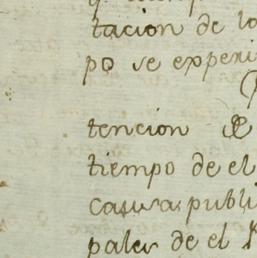 tacion de lo
po se experi
tencion de
tiempo de el
causa publi
pales de el